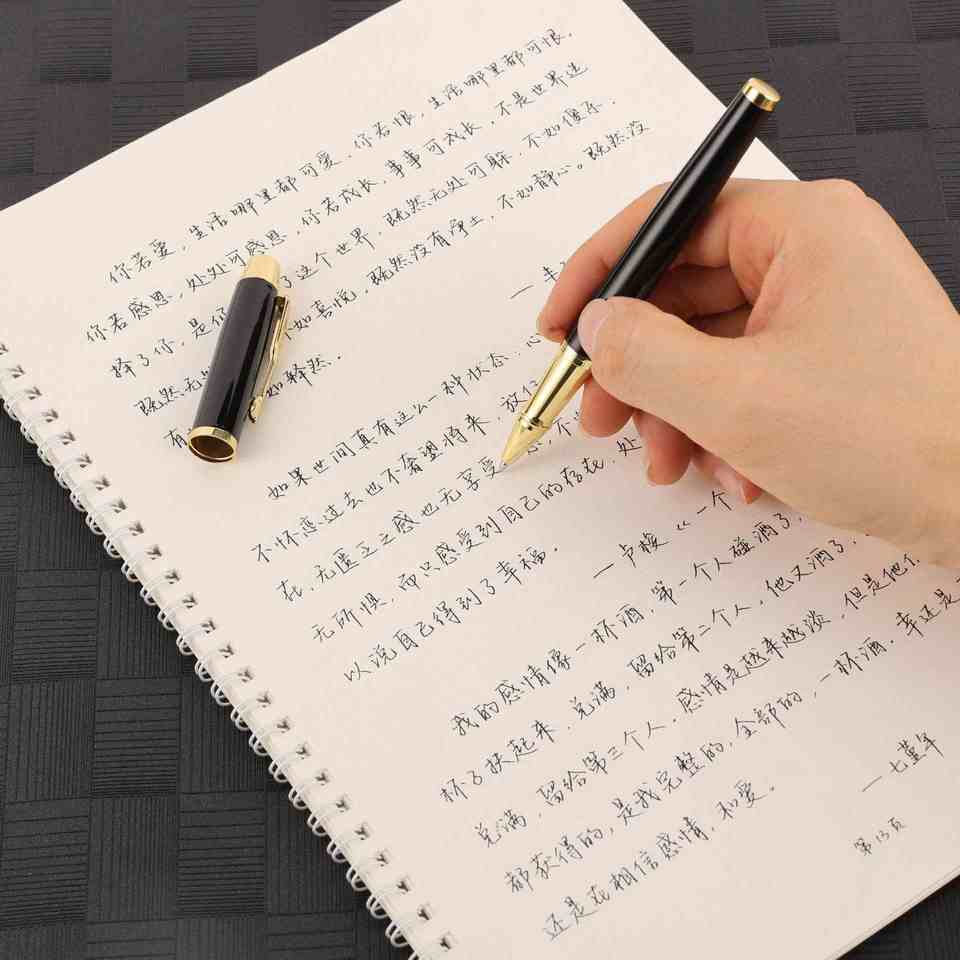 你若爱，生活哪里都可爱．你若恨，生活哪里都可恨．
你若感恩，处处可感恩，你若成长，事事可成长，不是世界选
择了你，是你 了这个世界．既然无处可躲．不如傻乐．
既然无 不如喜悦，既然没有净土，不如静心。既然没
有 如释然．
一丰
如果世间真有这么一种状态．心
不怀恋过去也不奢望将来．放
在．无匮乏之感也无享受 不
无所惧，而只感受到自己的存在．处
以说自己得到了幸福．
一卢梭《一个
我的感情像一杯酒．第一个人碰洒了．
杯了扶起来．兑满，留给第二个人，他又洒了．
兑满，留给第三个人，感情是越来越淡，但是他们
都获得的，是我完整的，全部的，一杯酒．幸还是
还是在相信感情．和爱。
一七堇年
第13页